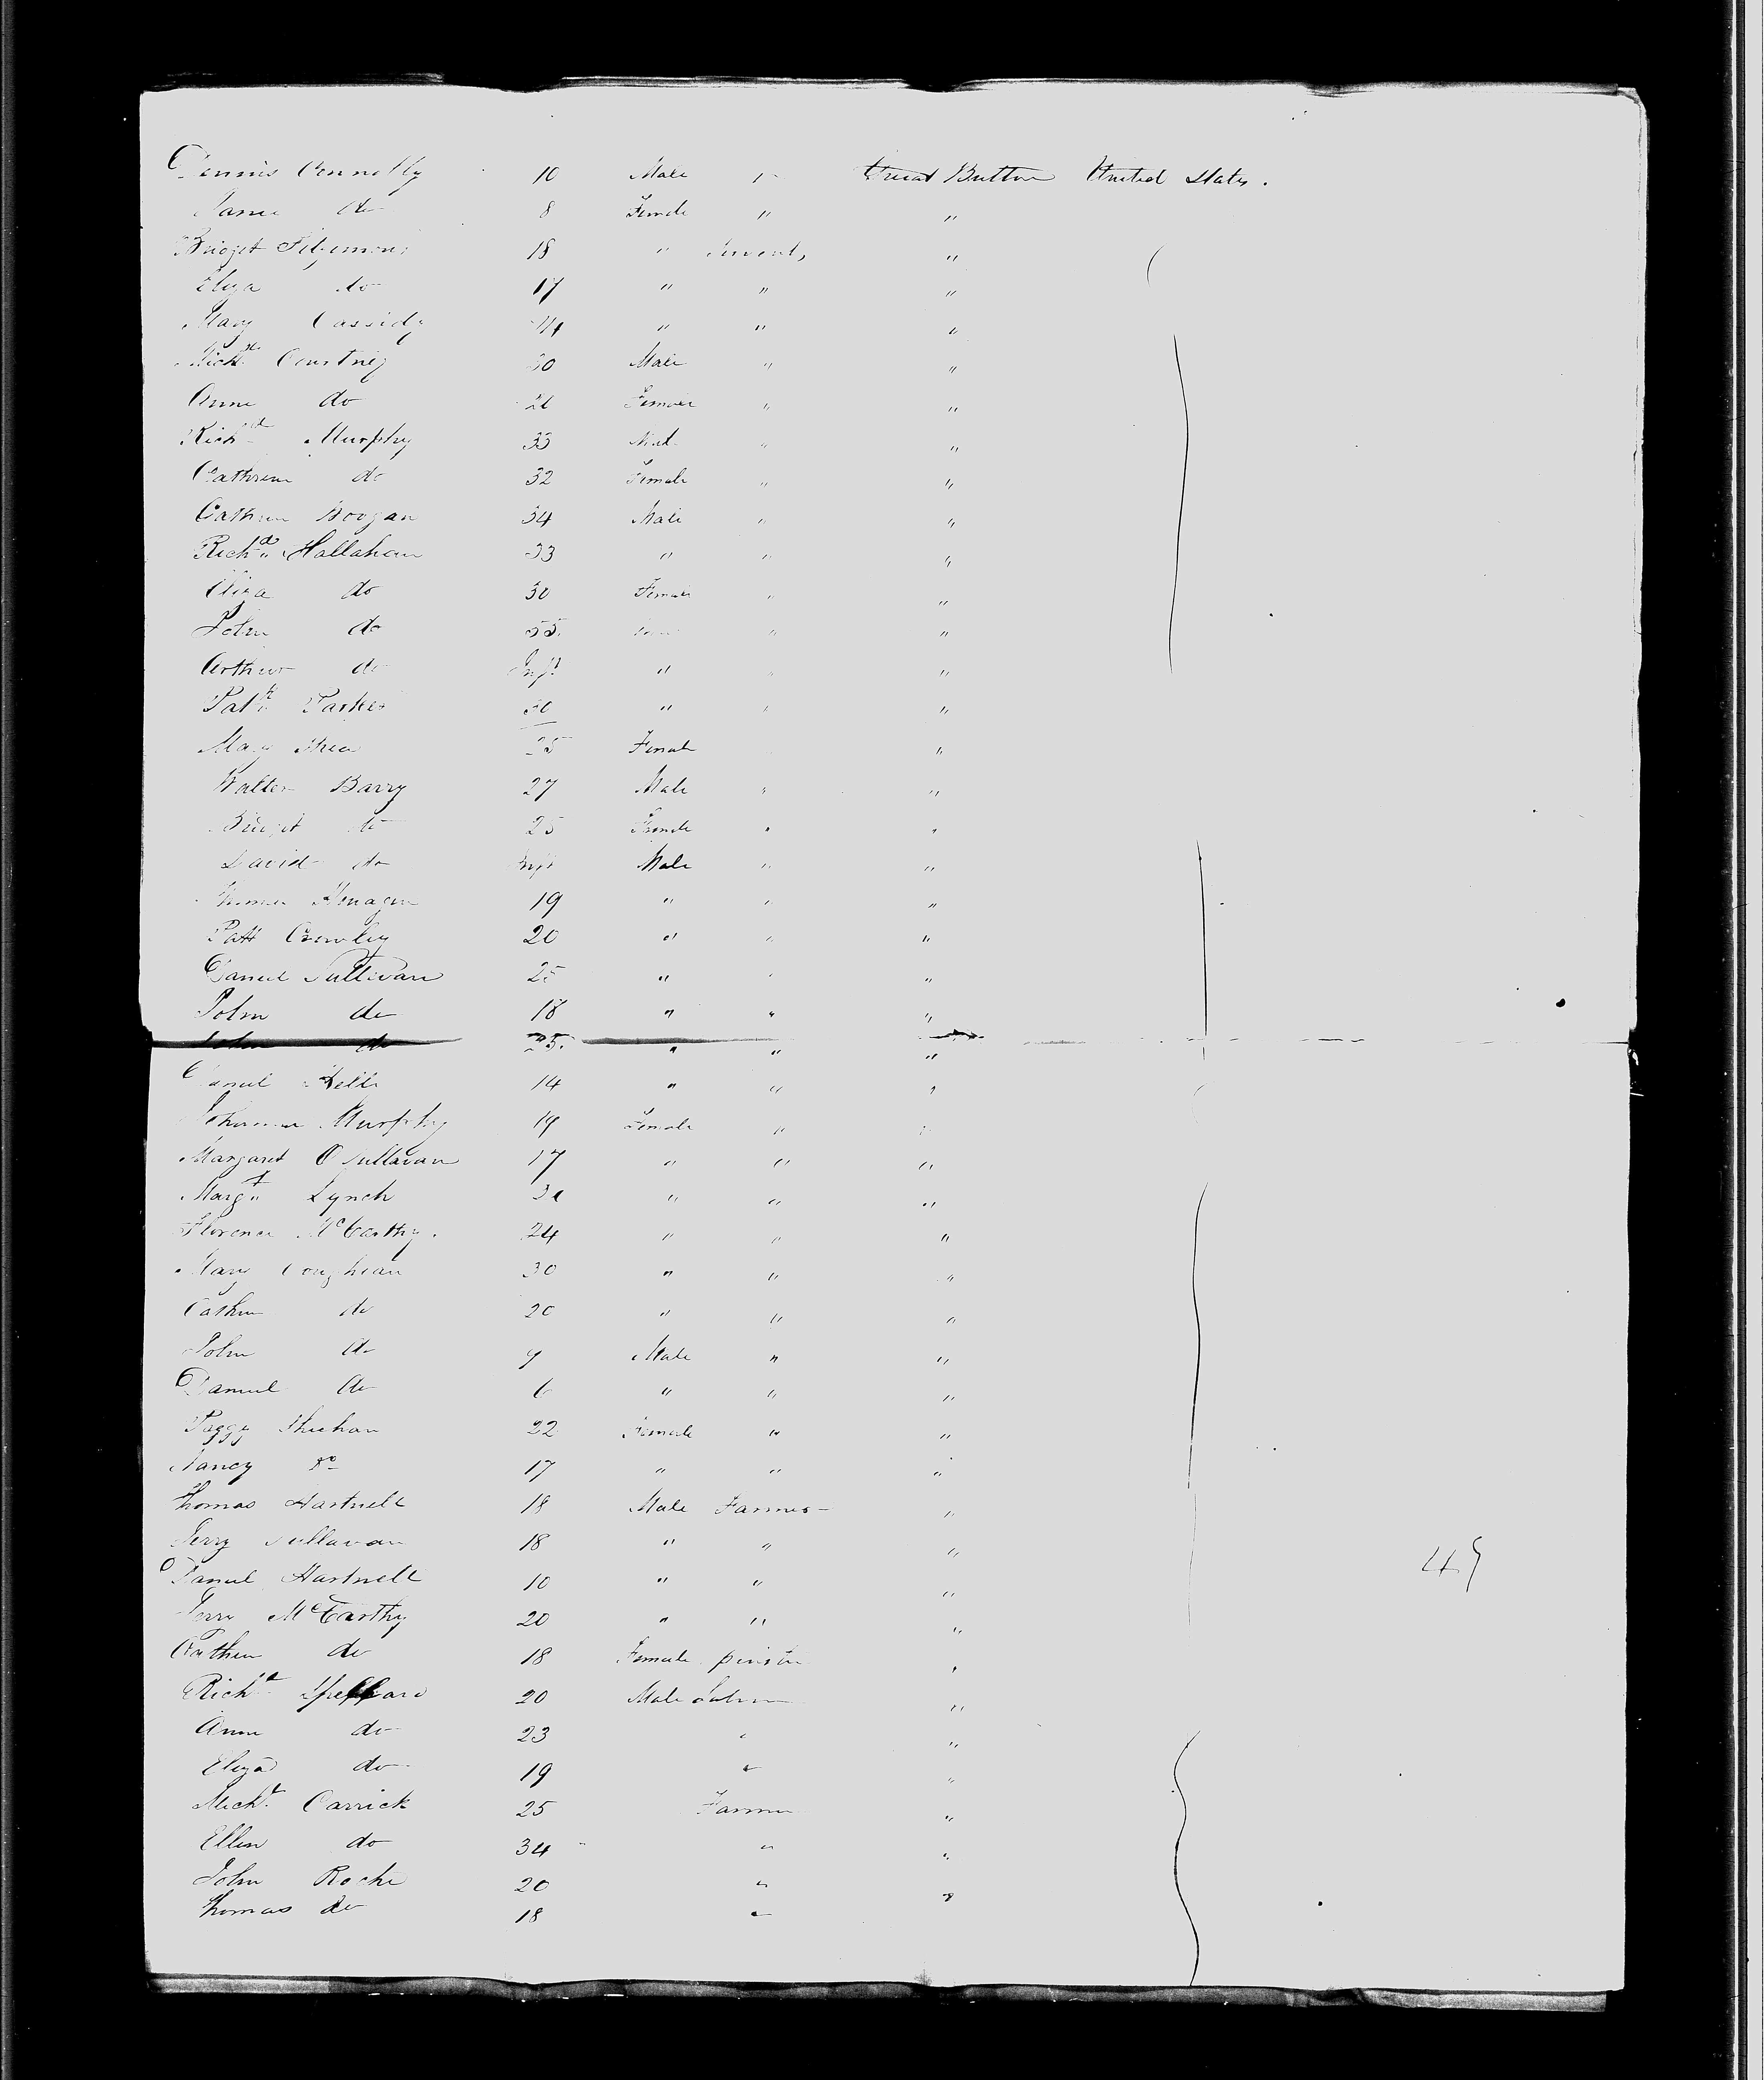 Dennis Connolly 10 Male " Great Britton United States.
do 8 Female " "
Bridget 18 " Servant, "
Eliza do 17 " " "
Mary Cassidy " " "
Michl Courtney 30 Male " "
Anne do Female " "
Richd Murphy 33 Male " "
Cathrine do 32 Female " "
34 Male " "
Richd Hallahan 33 " " "
Eliza do 30 Female " "
John do 35 " "
Arthur do Inft " " "
Patk 30 " " "
Mary Shea 25 Female "
Walter Barry 27 Male " "
Bridget do 25 Female " "
David do Inft Male " "
19 " " "
Patt Crowley 20 " " "
Daniel Sullivan 25 " " "
John do 18 " " "
John do 25 " " "
Daniel Kelly 14 " " "
Johanna Murphy 19 Female " "
Margaret O Sullavan 17 " " "
Margt Lynch " " "
Florence McCarthy. 24 " " "
Mary 30 " " "
do 20 " " "
John do 9 Male " "
Daniel do 6 " " "
Peggy Sheehan 22 Female " "
Nancy do 17 " " "
Thomas Hartnell 18 Male Farmer "
Jerry Sullavan 18 " " "
Daniel Hartnell 10 " " "
Jerry McCarthy 20 " " "
do 18 Female "
Richd 20 Male "
Anne do 23 " "
Eliza do 19 " "
Michl Carrick 25 Farmer "
Ellen do 34 " "
John Roche 20 " "
Thomas do 18 "